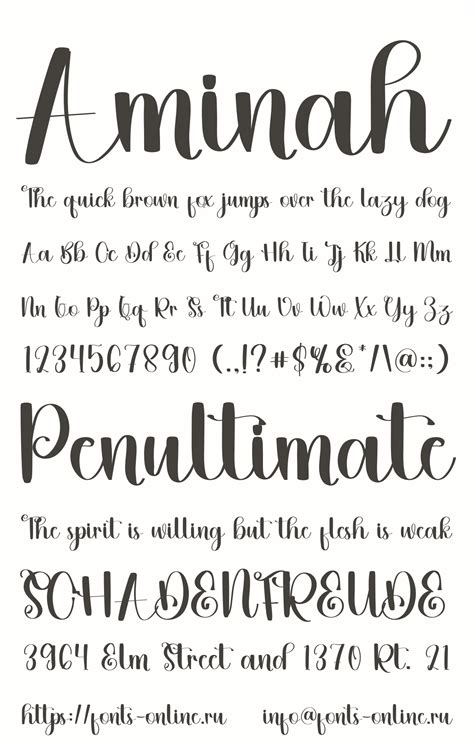 Aminah
The quick brown fox jumps over the lazy dog
Aa Bb Cc Dd Ee Ff Gg Hh Ii Jj Kk Ll Mm
Nn Oo Pp Qq Rr Ss Tt Uu Vv Ww Xx Yy Zz
1234567890 (.,!?#$%&*/\@:;)
Penultimate
The spirit is willing but the flesh is weak
SCHADENFREUDE
3964 Elm Street and 1370 Rt. 21
https://fonts-online.ru info@fonts-online.ru